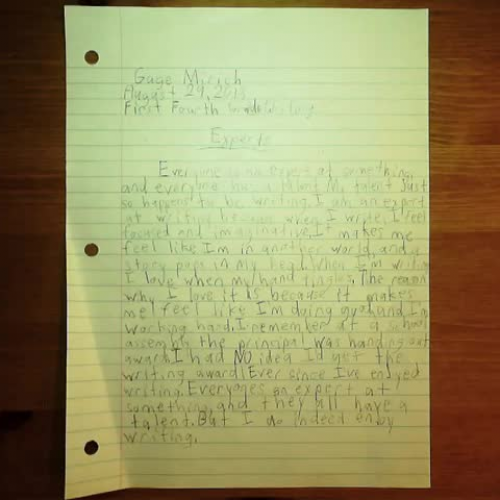 Gage Mirich
August 29, 2013
First Fourth
Experts
Everyone is an expert at something,
and everyone has a talent. My talent just
so happens to be writing. I am an expert
at writing because when I write, I feel
focused and imaginative. It makes me
feel like I'm in another world, and a
story pops in my head. When I'm writing
I love when my hand tingles. The reason
why I love it is because it makes
me feel like I'm doing good and I'm
working hard. I remember at a school
assembly the principal was handing out
award. I had NO idea I'd get the
writing award! Ever since I've enjoyed
writing. Everyones an expert at
something, and they all have a
talent. But I do indeed enjoy
writing.